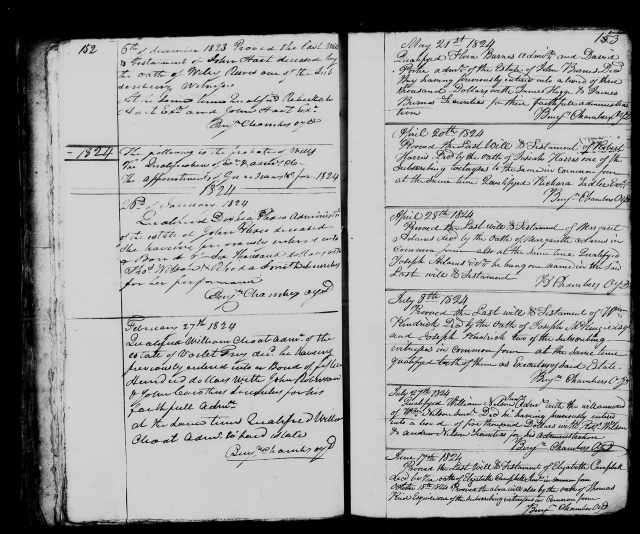 152
6th of december 1823 Proved the last will
& Testament of John Hart deceased by
the oath of Wiley Reeves one of the Sub
scribing Witness
At the same time Qualified Rebeckah
Hart Exx and John Hart Exr
Benj Chambers oyd
1824
The following is the probate of Wills
The Qualification of
the appointments of Guardians &c for 1824
1824
26th January 1824
Qualified Administ
of the estate of John deceased
She haveing previously entered into
a Bond of Six thousand dollars with
Thos Wilson & Smith Securities
for her performance
Benj Chambers oyd
February 27th 1824
Qualified William Choat Admr. of the
estate of decd. he haveing
previously entered into a Bond of fifteen
Hundred dollars with John
& John Carothers Securities for his
faithfull Admr.
at the same time Qualified William
Choat Admr. to said estate
Benj Chambers oyd
153
May 21st 1824
Qualified Flora Barnes Admx. and David
admr. of the Estate of John Barnes Decd
they haveing previously entered into a bond of three
thousand Dollars with James and James
Barnes Securities for their faithfull administra
tion
Benj Chambers O.Y.D
April 20th 1824
Proved the Last Will & Testament of Robert
Harris Decd by the Oath of Harris one of the
Subscribing witnesses to the same in common form
at the same time Qualifyed Richard Sadler Exr
Benj Chambers O.Y.D
April 28th 1824
Proved the Last will & Testament of Margaret
Adams decd by the Oaths of Margaret Adams in
Common form also at the same time Qualifyed
Joseph Adams Exr. he being named in the said
Last will & Testament
B Chambers O.Y.D
July 9th 1824
Proved the Last will & Testament of Wm
Kendrick Decd by the Oath of Joseph
and Joseph Kendrick two of the Subscribing
witnesses in Common form at the same time
qualifyed both of them as Executors of said Estate
Benj Chambers O.Y.D
July 17th 1824
Qualifyed William Nelson Junr. Admr. with the will annexed
of Wm Nelson Senr. Decd he haveing previously entered
into a bond of five thousand Dollars with Wilson
& Andrew Nelson Securities for his Administration
Benj Chambers O.Y.D
June 17th 1824
Proved the Last Will & Testament of Elizabeth Campbell
decd by the oath of Elizabeth Campbell Junr. in common form
October 18th 1824 Proved the above will also by the oath of Thomas
Esquire one of the subscribing witnesses in Common form
Benj Chambers O.Y.D